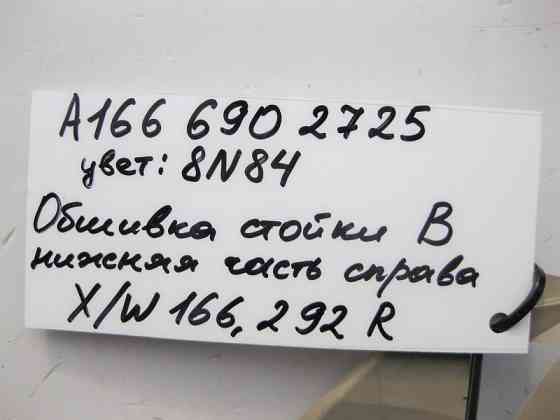 A166 690 2725
цвет: 8N84
Обшивка стойки В
нижняя часть справа
X/W 166, 292 R